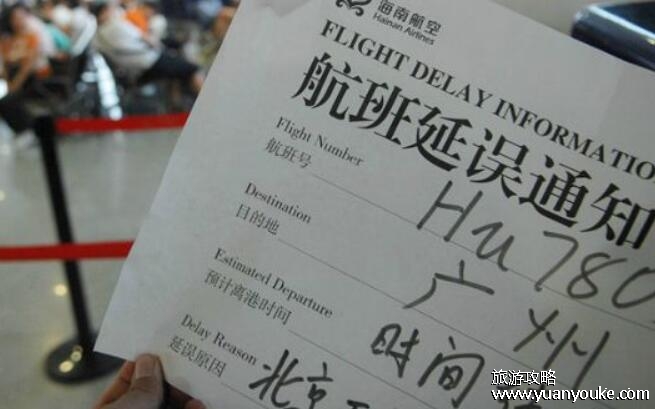 海南航空
Hainan Airlines
FLIGHT DELAY INFORMATIO
航班延误通知
Flight Number
航班号 Hu780
Destination
目的地 广州
Estimated Departure
预计离港时间 时间
Delay Reason
延误原因 北京
旅游攻略
www.yuanyouke.com